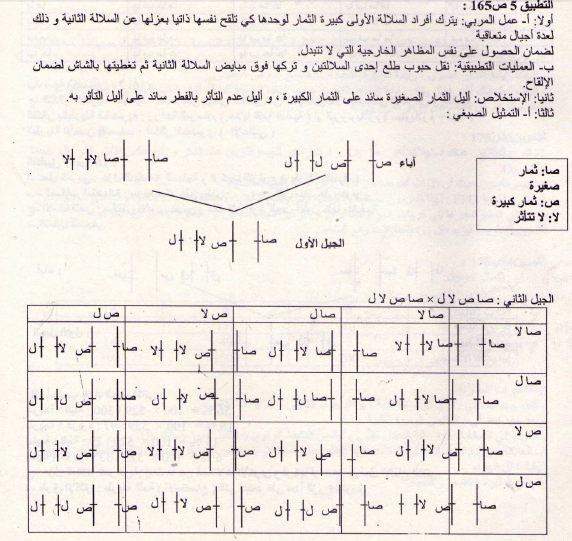 التطبيق 5 ص165 :
أولا: أ- عمل المربي: يترك أفراد السلالة الأولى كبيرة الثمار لوحدها كي تلقح نفسها ذاتيا بعزلها عن السلالة الثانية و ذلك
لعدة أجيال متعاقبة
لضمان الحصول على نفس المظاهر الخارجية التي لا تتبدل.
ب- العمليات التطبيقية: نقل حبوب طلع إحدى السلالتين و تركها فوق مبايض السلالة الثانية ثم تغطيتها بالشاش لضمان
الإلقاح.
ثانيا: الإستخلاص: أليل الثمار الصغيرة سائد على الثمار الكبيرة ، و أليل عدم التأثر بالفطر سائد على أليل التأثر به.
ثالثا: أ- التمثيل الصبغي :
آباء ص ص ل ل صا صا لا لا
صا: ثمار
صغيرة
ص: ثمار كبيرة
لا: لا تتأثر
الجيل الأول صا ص لا ل
الجيل الثاني : صا ص لا ل × صا ص لا ل
صا لا صا ل ص لا ص ل
صا لا صا صا لا لا صا صا لا ل صا ص لا لا صا ص لا ل
صا ل صا صا لا ل صا صا ل ل صا ص لا ل صا ص ل ل
ص لا صا ص لا لا صا ص لا ل ص ص لا لا ص ص لا ل
ص ل صا ص لا ل صا ص ل ل ص ص لا ل ص ص ل ل